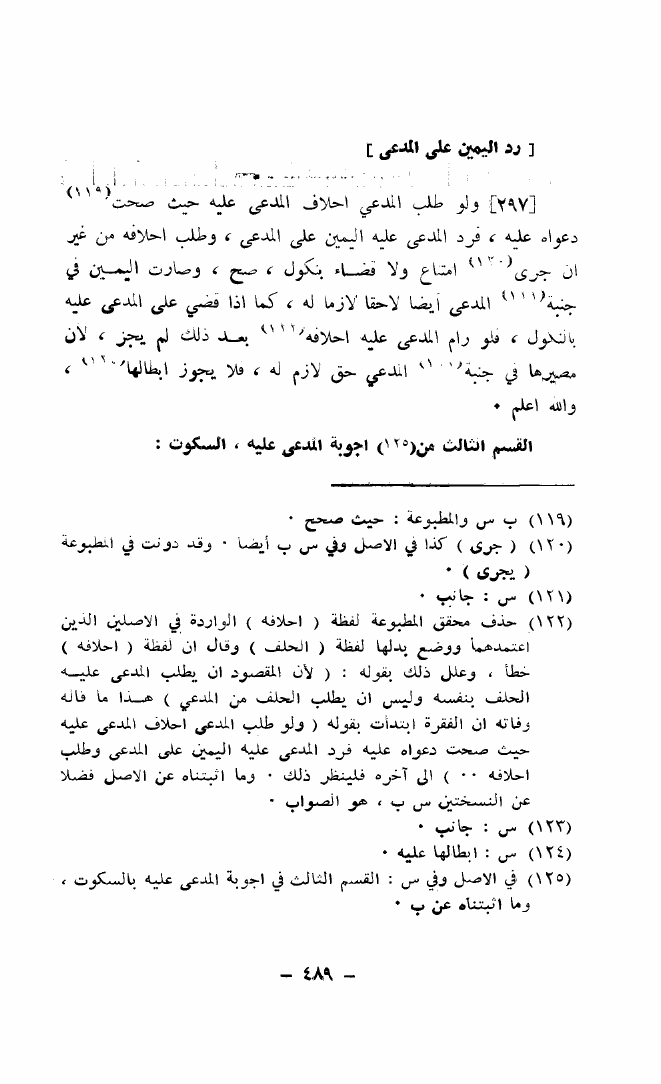 [ رد اليمين على المدعى ]
[٢٩٧] ولو طلب المدعي احلاف المدعى عليه حيث صحت(١١٩)
دعواه عليه ، فرد المدعى عليه اليمين على المدعى ، وطلب احلافه من غير
ان جرى(١٢٠) امتناع ولا قضــاء بنكول ، صح ، وصارت اليمــين في
جنبة(١٢١) المدعى أيضا لاحقا لازما له ، كما اذا قضي على المدعى عليه
بالنكول ، فلو رام المدعى عليه احلافه(١٢٢) بعــد ذلك لم يجز ، لأن
مصيرها في جنبة(١٢٣) المدعي حق لازم له ، فلا يجوز ابطالها(١٢٤) ،
والله اعلم ٠
القسم الثالث من(١٢٥) اجوبة المدعى عليه ، السكوت :
(١١٩) ب س والمطبوعة : حيث صحح ٠
(١٢٠) ( جرى ) كذا في الاصل وفي س ب أيضا ٠ وقد دونت في المطبوعة
( يجرى ) ٠
(١٢١) س : جانب ٠
(١٢٢) حذف محقق المطبوعة لفظة ( احلافه ) الواردة في الاصلين الذين
اعتمدهما ووضع بدلها لفظة ( الحلف ) وقال ان لفظة ( احلافه )
خطأ ، وعلل ذلك بقوله : ( لأن المقصود ان يطلب المدعى عليــه
الحلف بنفسه وليس ان يطلب الحلف من المدعي ) هــذا ما قاله
وفاته ان الفقرة ابتدأت بقوله ( ولو طلب المدعى احلاف المدعى عليه
حيث صحت دعواه عليه فرد المدعى عليه اليمين على المدعى وطلب
احلافه ٠٠ ) الى آخره فلينظر ذلك ٠ وما اثبتناه عن الاصل فضلا
عن النسختين س ب ، هو الصواب ٠
(١٢٣) س : جانب ٠
(١٢٤) س : ابطالها عليه ٠
(١٢٥) في الاصل وفي س : القسم الثالث في اجوبة المدعى عليه بالسكوت ،
وما اثبتناه عن ب ٠
– ٤٨٩ –